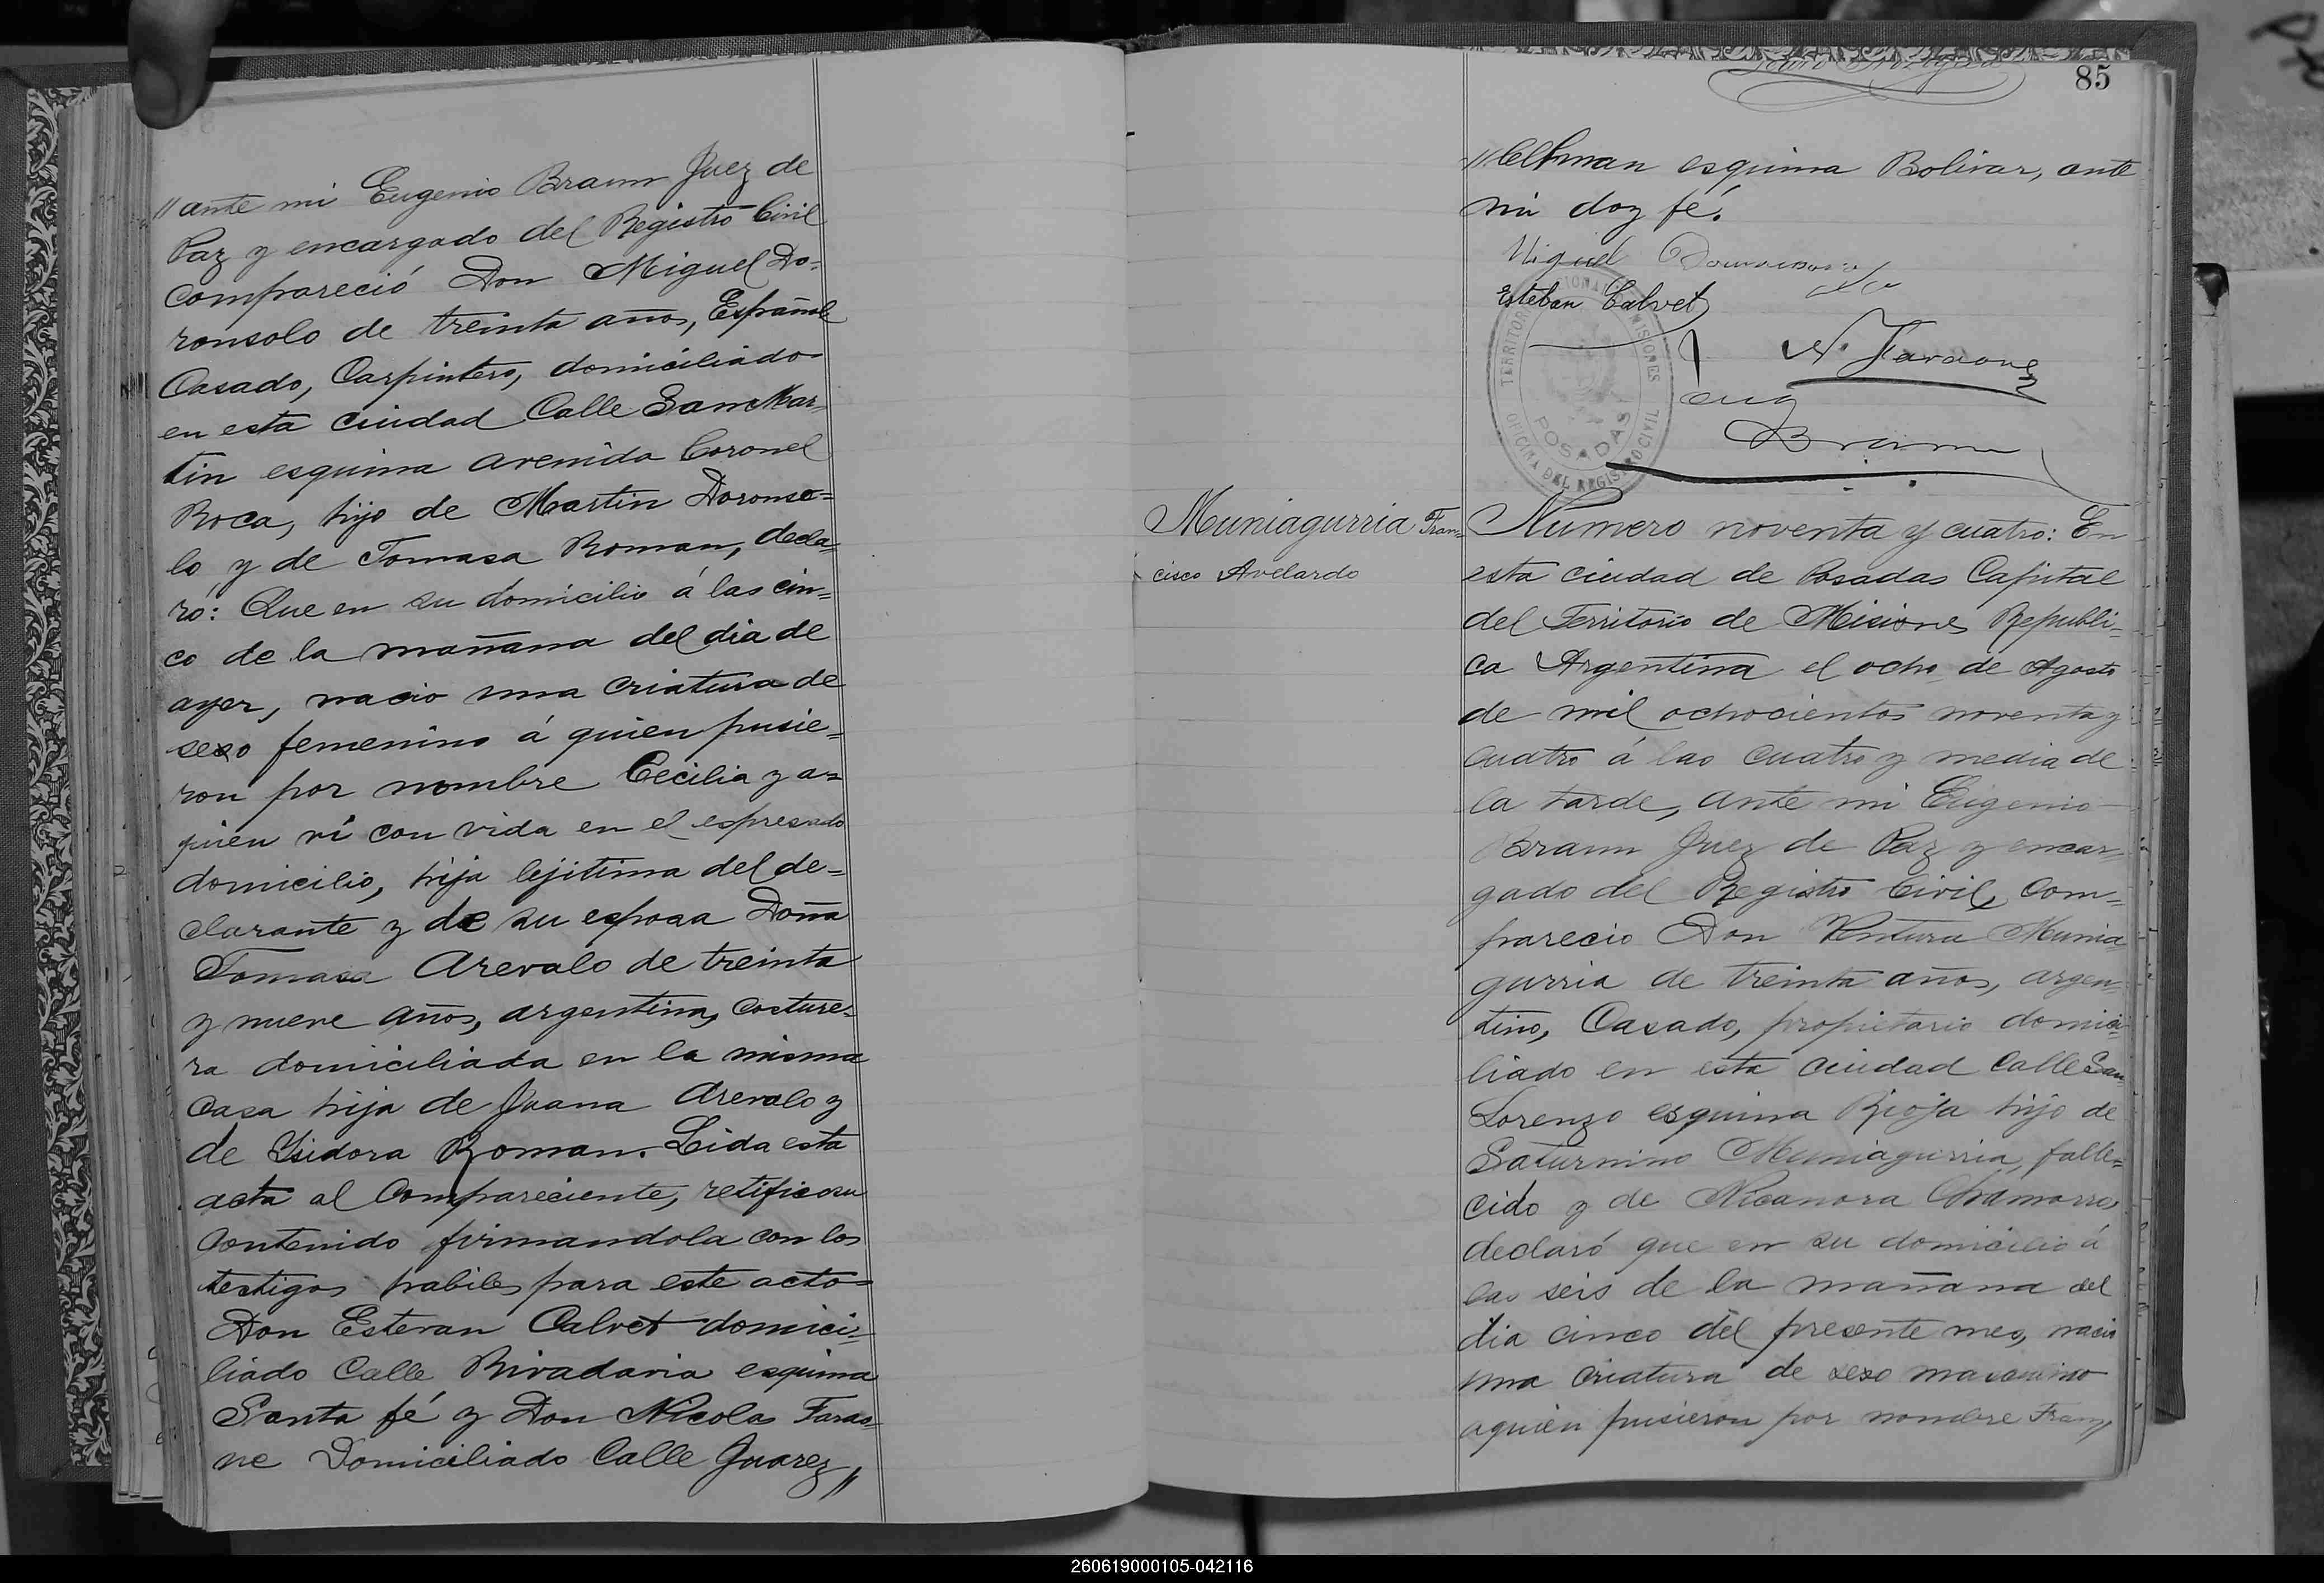 "ante mi Eugenio Braun Juez de
Paz y encargado del Registro Civil
Compareció Don Miguel Do-
ronsolo de treinta años, Español
Casado, Carpintero, domiciliado
en esta ciudad Calle San Mar-
tin esquina avenida Coronel
Roca, hijo de Martin Doronso=
lo y de Tomasa Roman, decla-
ró: Que en su domicilio á las cin=
co de la mañana del dia de
ayer, nacio una criatura de
sexo femenino á quien pusie=
ron por nombre Cecilia y a=
quien ví con vida en el espresado
domicilio, hija lejitima del de=
clarante y de su esposa Doña
Tomasa Arevalo de treinta
y nueve años, argentina, costure=
ra domiciliada en la misma
Casa hija de Juana Arevalo y
de Isidora Roman. Leida esta
acta al Compareciente, retifico su
Contenido firmandola con los
testigos habiles para este acto=
Don Estevan Calvet domici=
liado Calle Rivadavia esquina
Santa fé y Don Nicolas Farao=
ne Domiciliado Calle Juarez"
85
"Celman esquina Bolivar, ante
mi doy fé.
Miguel
Esteban Calvet
N. Faraone
Eug
Braun
TERRITORIO NACIONAL DE MISIONES
POSADAS
OFICINA DEL REGISTRO CIVIL
Muniagurria Fran=
cisco Avelardo
Número noventa y cuatro: En
esta ciudad de Posadas Capital
del Territorio de Misiones Republi=
ca Argentina el ocho de Agosto
de mil ochocientos noventa y
cuatro á las cuatro y media de
la tarde, ante mi Eugenio
Braun Juez de Paz y encar=
gado del Registro Civil, Com=
parecio Don Ventura Munia
gurria de treinta años, argen=
tino, Casado, propietario domici=
liado en esta ciudad Calle San
Lorenzo esquina Rioja hijo de
Saturnino Muniagurria, falle=
cido y de Nicanora Chamorro,
declaró que en su domicilio á
las seis de la mañana del
dia cinco del presente mes, nacio
una criatura de sexo masculino
aquien pusieron por nombre Fran"
260619000105-042116